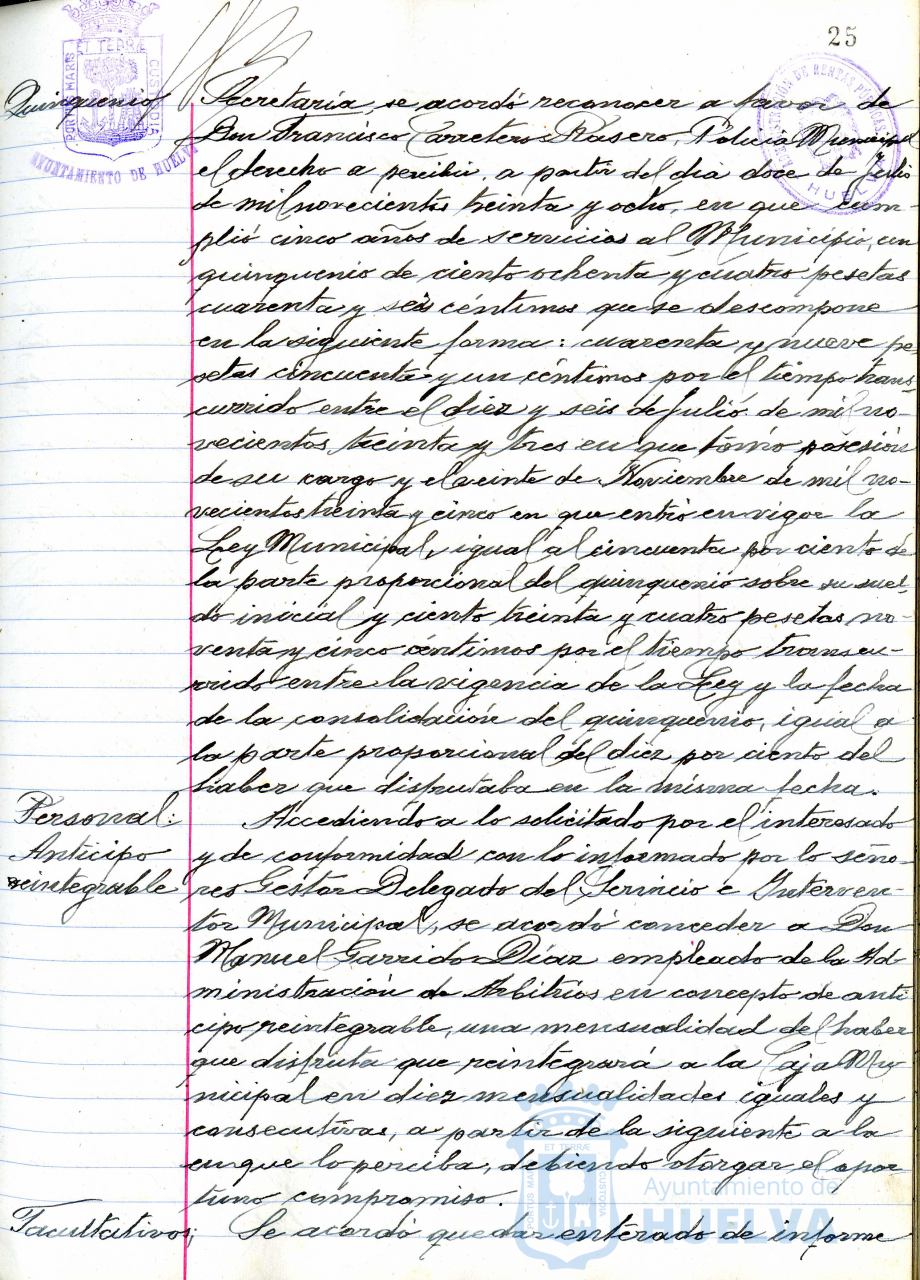 25
PORTUS MARIS ET TERRÆ CUSTODIA
AYUNTAMIENTO DE HUELVA
HUELVA
Quinquenio
Secretaría se acordó reconocer a favor de
Don Francisco Carretero Rasero, Policía Municipal
el derecho a percibir, a partir del día doce de Julio
de mil novecientos treinta y ocho, en que cum-
plió cinco años de servicios al Municipio, un
quinquenio de ciento ochenta y cuatro pesetas
cuarenta y seis céntimos que se descompone
en la siguiente forma: cuarenta y nueve pe-
setas cincuenta y un céntimos por el tiempo trans-
currido entre el diez y seis de Julio de mil no-
vecientos treinta y tres en que tomó posesión
de su cargo y el veinte de Noviembre de mil no-
vecientos treinta y cinco en que entró en vigor la
Ley Municipal, igual al cincuenta por ciento de
la parte proporcional del quinquenio sobre su suel-
do inicial y ciento treinta y cuatro pesetas no-
venta y cinco céntimos por el tiempo transcu-
rrido entre la vigencia de la Ley y la fecha
de la consolidación del quinquenio, igual a
la parte proporcional del diez por ciento del
haber que disfrutaba en la misma fecha.
Personal:
Anticipo
reintegrable
Accediendo a lo solicitado por el interesado
y de conformidad con lo informado por lo seño-
res Gestor Delegado del Servicio e Interven-
tor Municipal, se acordó conceder a Don
Manuel Garrido Díaz empleado de la Ad-
ministración de Arbitrios en concepto de anti
cipo reintegrable, una mensualidad del haber
que disfruta que reintegrará a la Caja Mu
nicipal en diez mensualidades iguales y
consecutivas, a partir de la siguiente a la
en que lo perciba, debiendo otorgar el opor
tuno compromiso.
Facultativos;
Se acordó quedar enterado de informe
PORTUS MARIS ET TERRÆ CUSTODIA
Ayuntamiento de
HUELVA